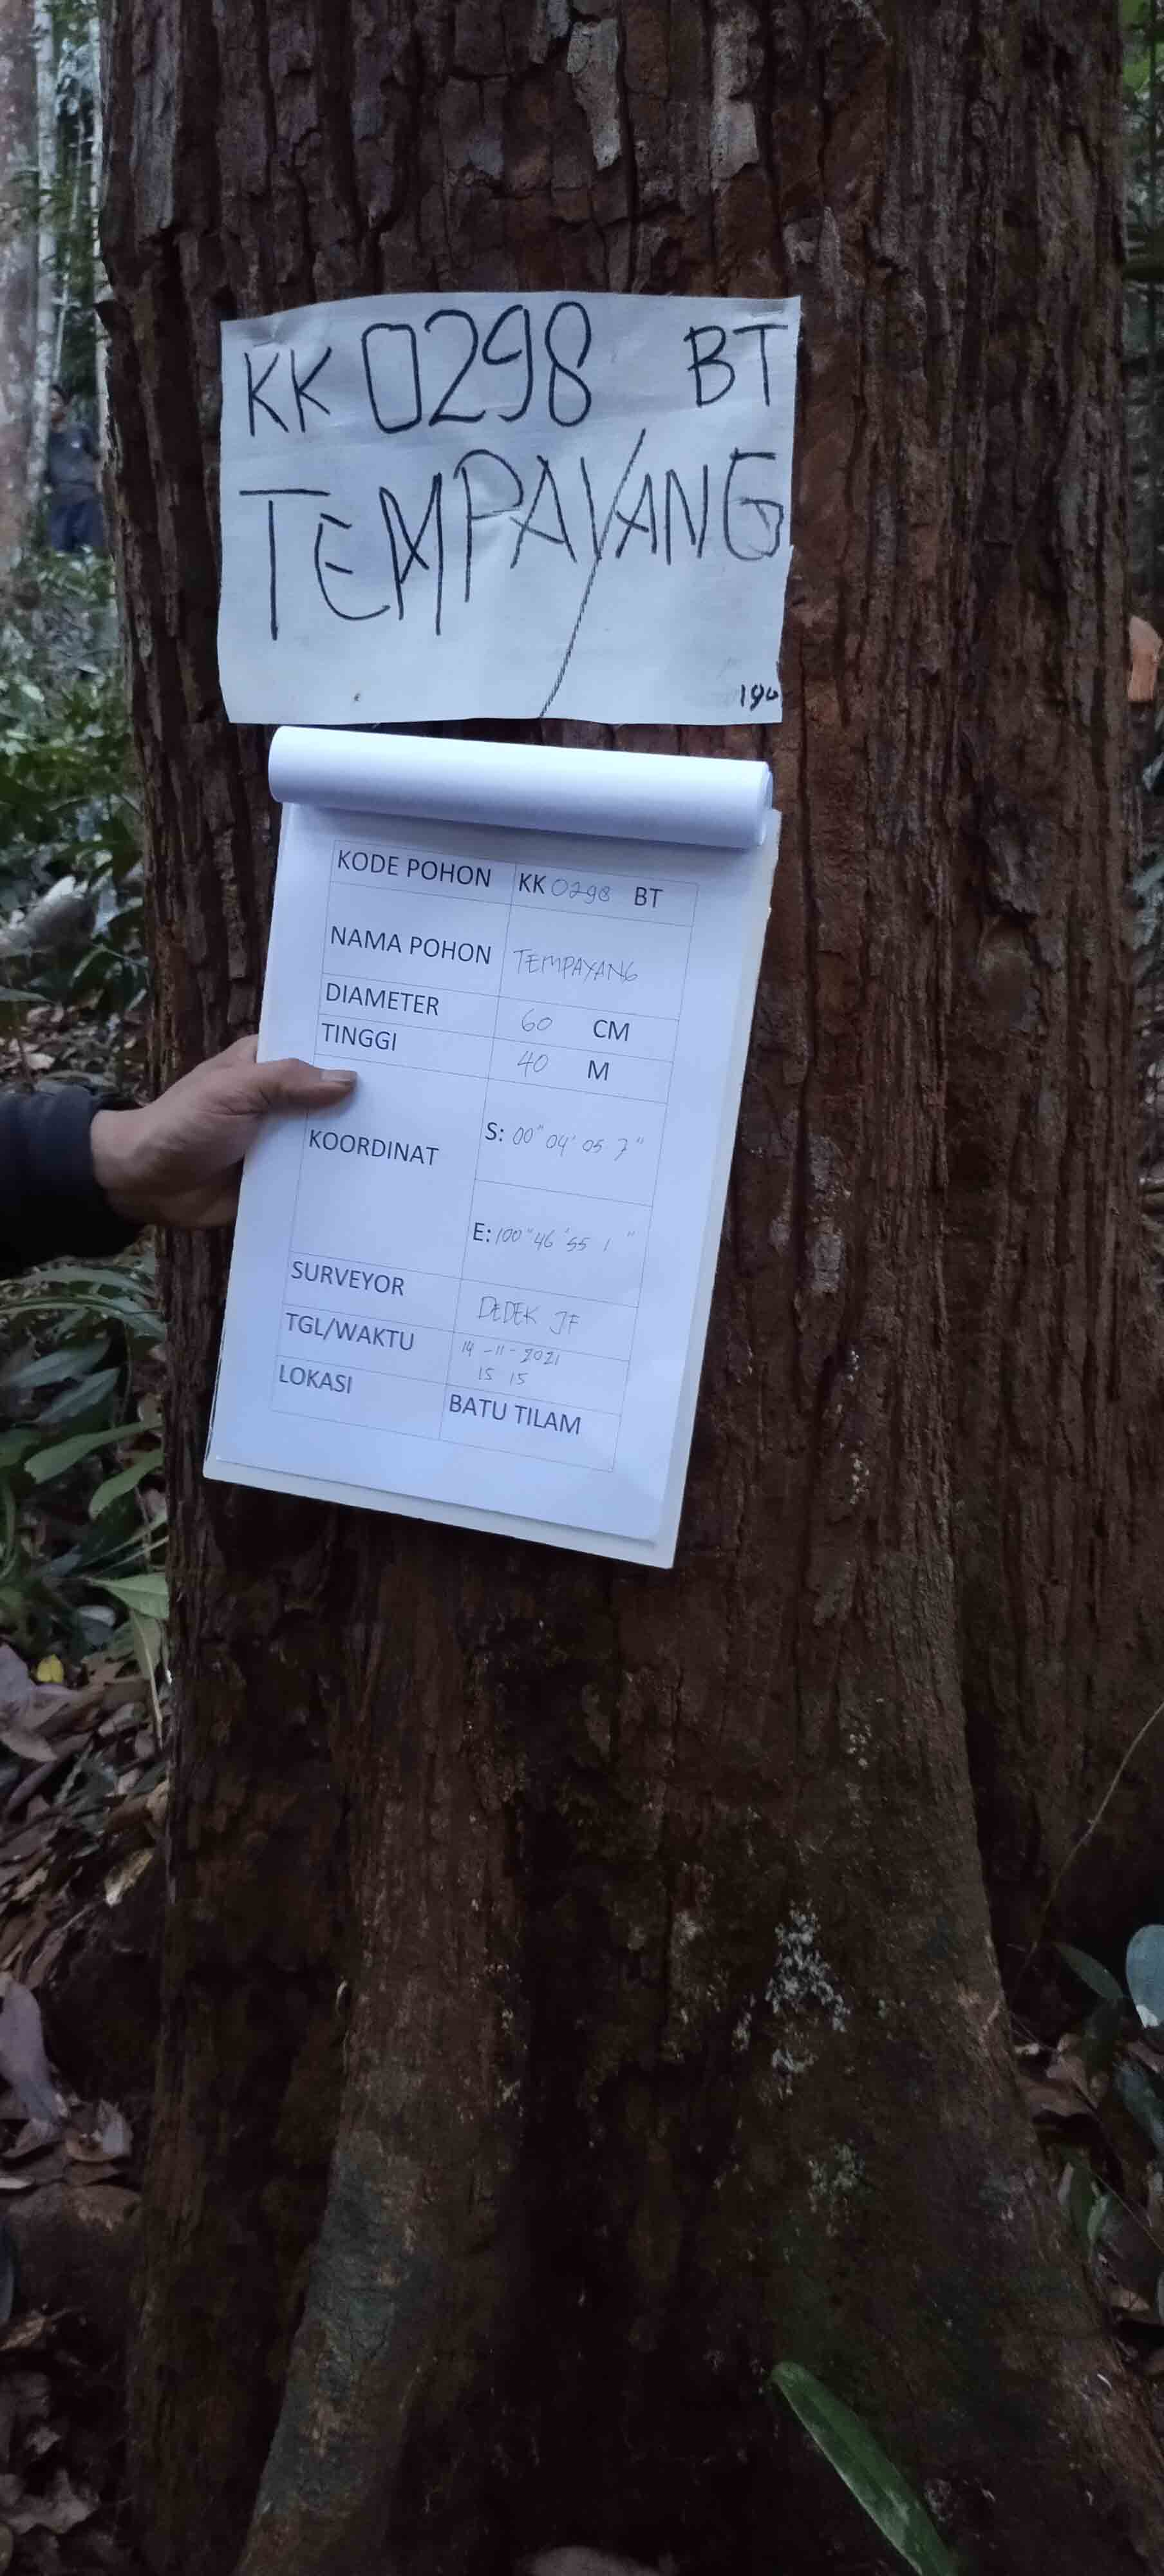 KK 0298 BT
TEMPAYANG
190
KODE POHON KK 0298 BT
NAMA POHON TEMPAYANG
DIAMETER 60 CM
TINGGI 40 M
KOORDINAT
S: 00" 04' 05 7"
E: 100" 46' 55 1"
SURVEYOR DEDEK JF
TGL/WAKTU 14-11-2021
15 15
LOKASI BATU TILAM